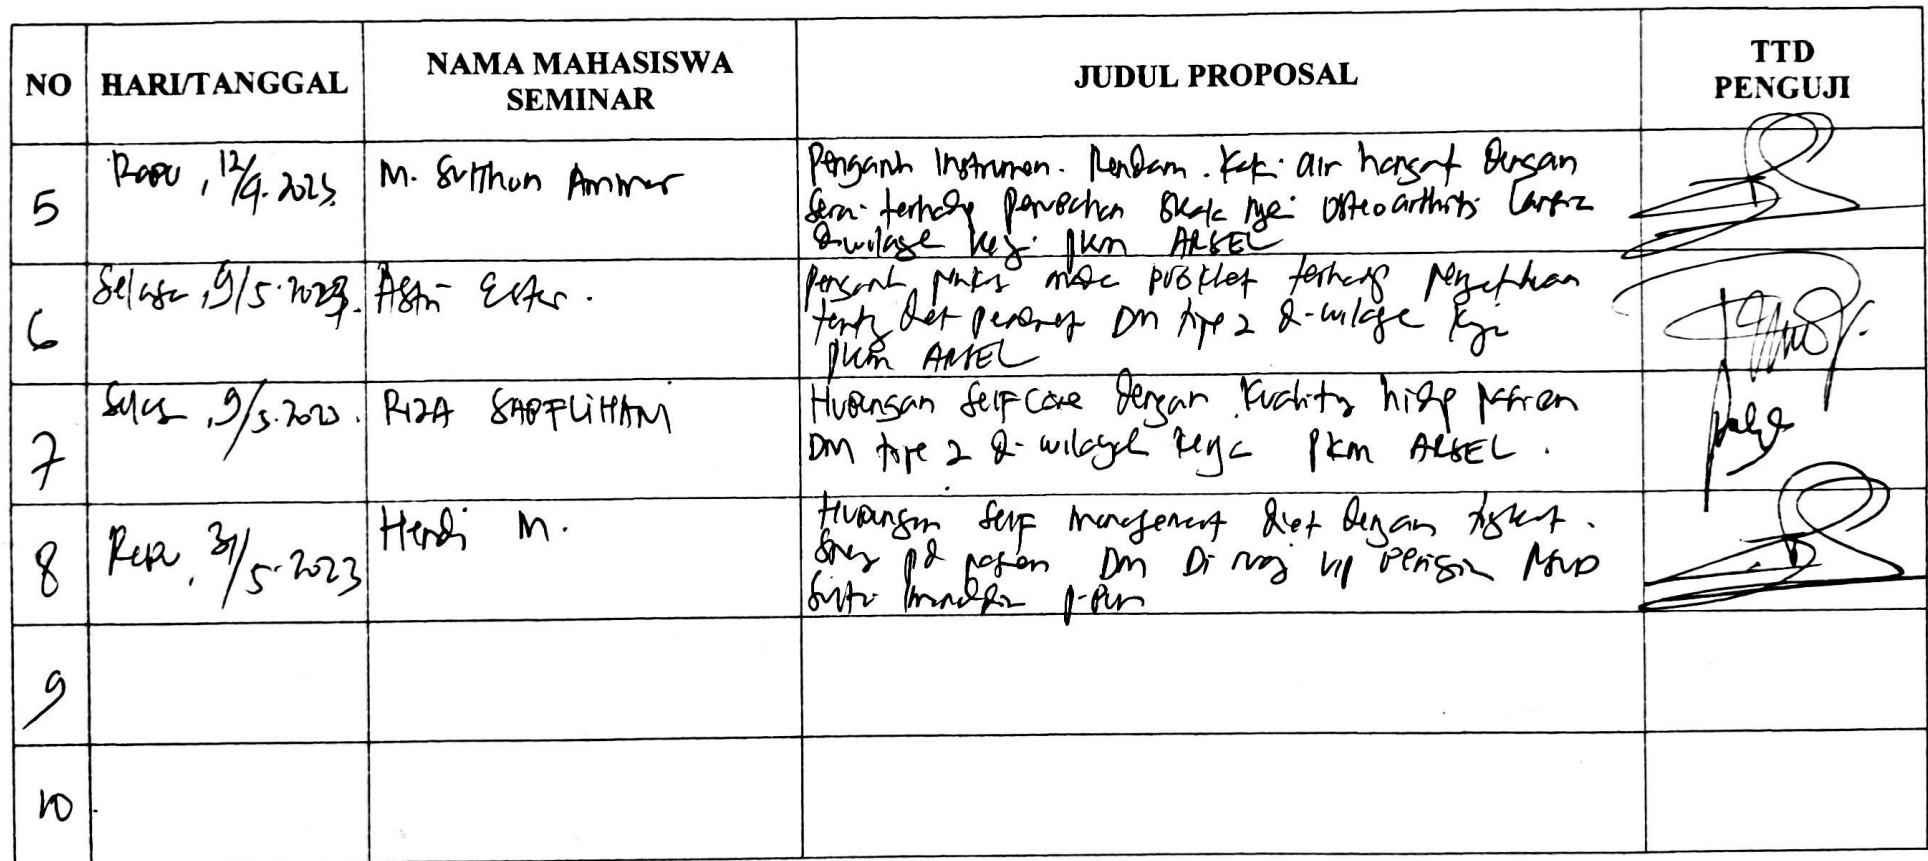 NO HARI/TANGGAL NAMA MAHASISWA SEMINAR JUDUL PROPOSAL TTD PENGUJI
5 Rabu, 12/4.2023. M. Sulthon Ammar
Pengaruh Instrumen. Rendam. Kaki air hangat dengan
Serai terhadap perubahan skala nyeri osteoarthritis Lansia
di wilayah kerja pkm ARSEL
6 Selasa, 9/5.2023. Astri Ester.
pengaruh media booklet terhadap pengetahuan
tentang diet penderita DM tipe 2 di wilaya kerja
pkm ARSEL
7 Selasa, 9/5.2023. RIZA
Hubungan Self Care dengan Kualitas hidup pasien
DM tipe 2 di wilayah kerja pkm ARSEL.
8 Rabu, 31/5.2023 Hendi M.
Hubungan Self management diet dengan tingkat.
stres pd pasien DM Di ruang VIP RSUD
Sultan Imanudin P-Bun
9
10